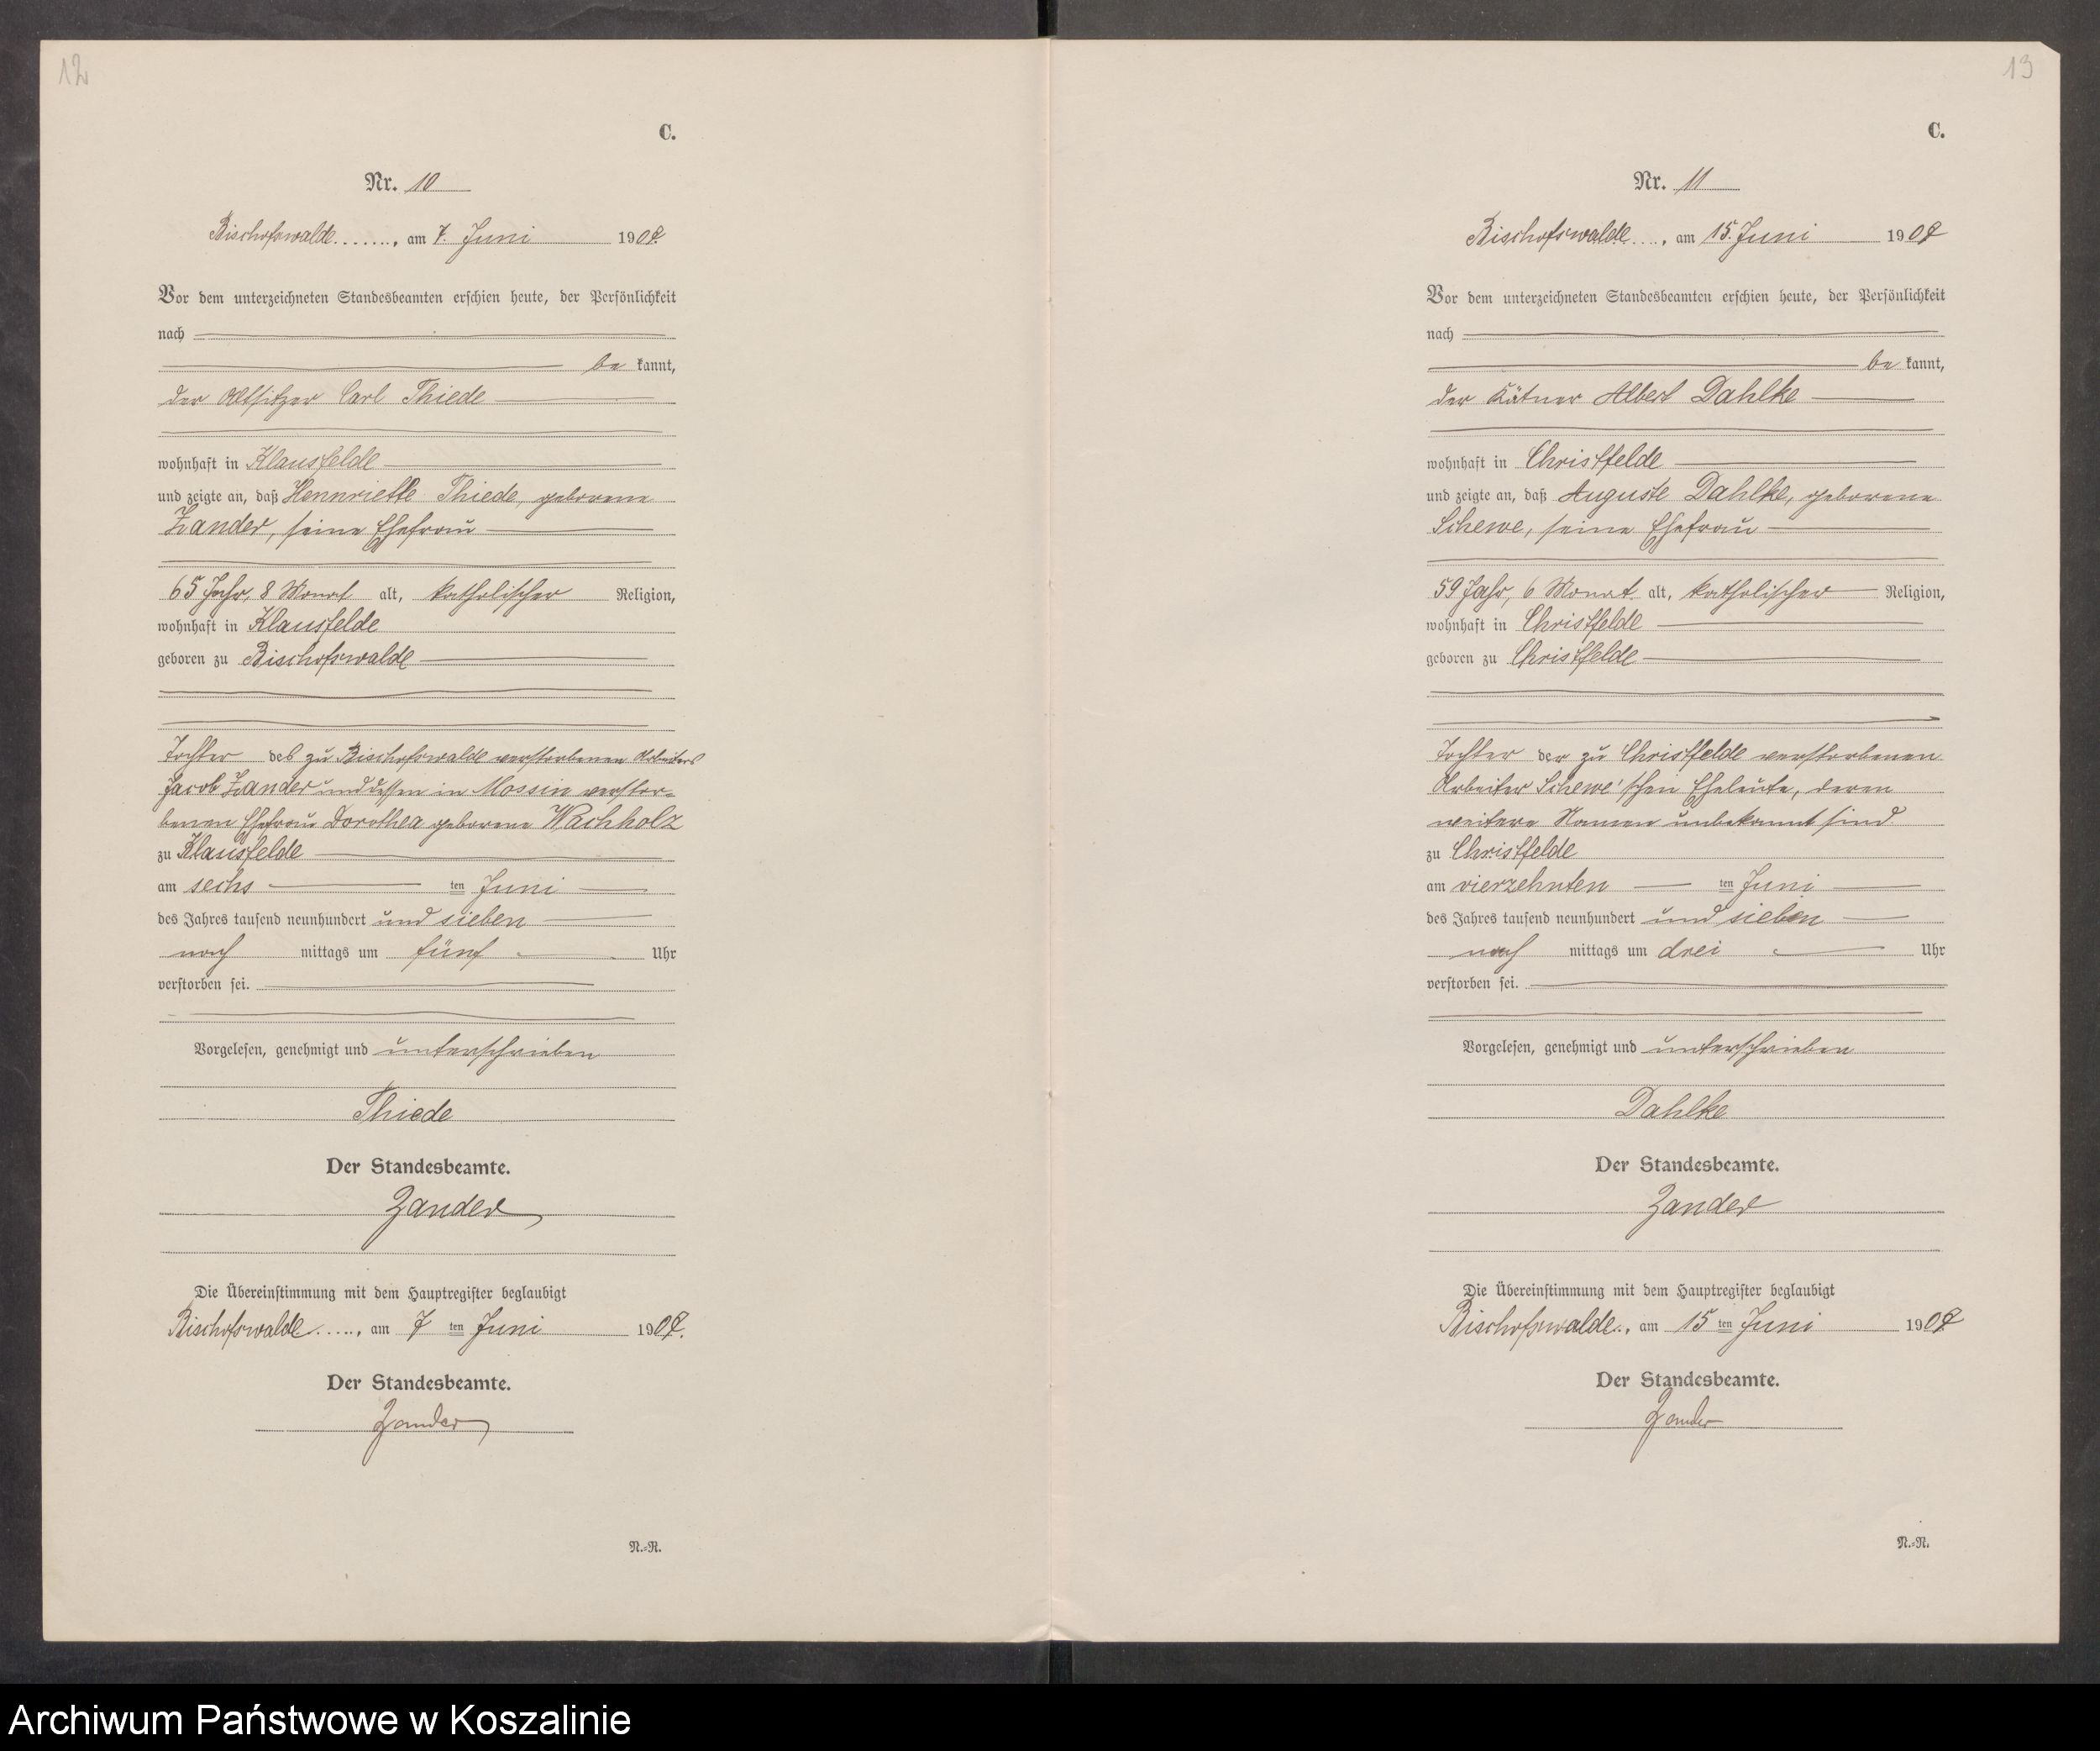 12
C.
Nr. 10
Bischofswalde......., am 7. Juni 1907.
Vor dem unterzeichneten Standesbeamten erschien heute, der Persönlichkeit
nach
be kannt,
der Altsitzer Carl Thiede
wohnhaft in Klausfelde
und zeigte an, daß Hennriette Thiede, geborene
Zander, seine Ehefrau
65 Jahr, 8 Monat alt, katholischer Religion,
wohnhaft in Klausfelde
geboren zu Bischofswalde
Tochter des zu Bischofswalde verstorbenen Arbeiters
Jacob Zander und dessen in Mossin verstor-
benen Ehefrau Dorothea geborene Wachholz
zu Klausfelde
am sechs ten Juni
des Jahres tausend neunhundert und sieben
nach mittags um fünf Uhr
verstorben sei.
Vorgelesen, genehmigt und unterschrieben
Thiede
Der Standesbeamte.
Zander
Die Übereinstimmung mit dem Hauptregister beglaubigt
Bischofswalde....., am 7 ten Juni 1907.
Der Standesbeamte.
Zander
N.-N.
13
C.
Nr. 11
Bischofswalde...., am 15. Juni 1907
Vor dem unterzeichneten Standesbeamten erschien heute, der Persönlichkeit
nach
be kannt,
der Kätner Albert Dahlke
wohnhaft in Christfelde
und zeigte an, daß Auguste Dahlke, geborene
Schewe, seine Ehefrau
59 Jahr, 6 Monat alt, katholischer Religion,
wohnhaft in Christfelde
geboren zu Christfelde
Tochter der zu Christfelde verstorbenen
Arbeiter Schewe'schen Eheleute, deren
weitere Namen unbekannt sind
zu Christfelde
am vierzehnten ten Juni
des Jahres tausend neunhundert und sieben
nach mittags um drei Uhr
verstorben sei.
Vorgelesen, genehmigt und unterschrieben
Dahlke
Der Standesbeamte.
Zander
Die Übereinstimmung mit dem Hauptregister beglaubigt
Bischofswalde.., am 15 ten Juni 1907
Der Standesbeamte.
Zander
N.-N.
Archiwum Państwowe w Koszalinie